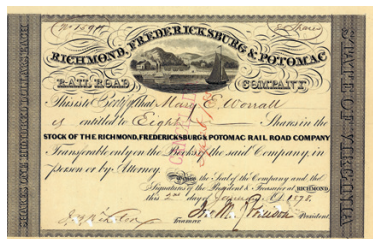 Shares
RICHMOND, FREDERICKSBURG & POTOMAC
RAIL ROAD COMPANY
This is to Certify that Mary E. Worrall
is entitled to Eight Shares in the
STOCK OF THE RICHMOND, FREDERICKSBURG & POTOMAC RAIL ROAD COMPANY
Transferable only on the Books of the said Company, in
person or by Attorney
the Seal of the Company and the
Signatures of the President & Treasurer at RICHMOND,
this 2nd day of 1878.
Treasurer President
SHARES ONE HUNDRED DOLLARS EACH
STATE OF VIRGINIA